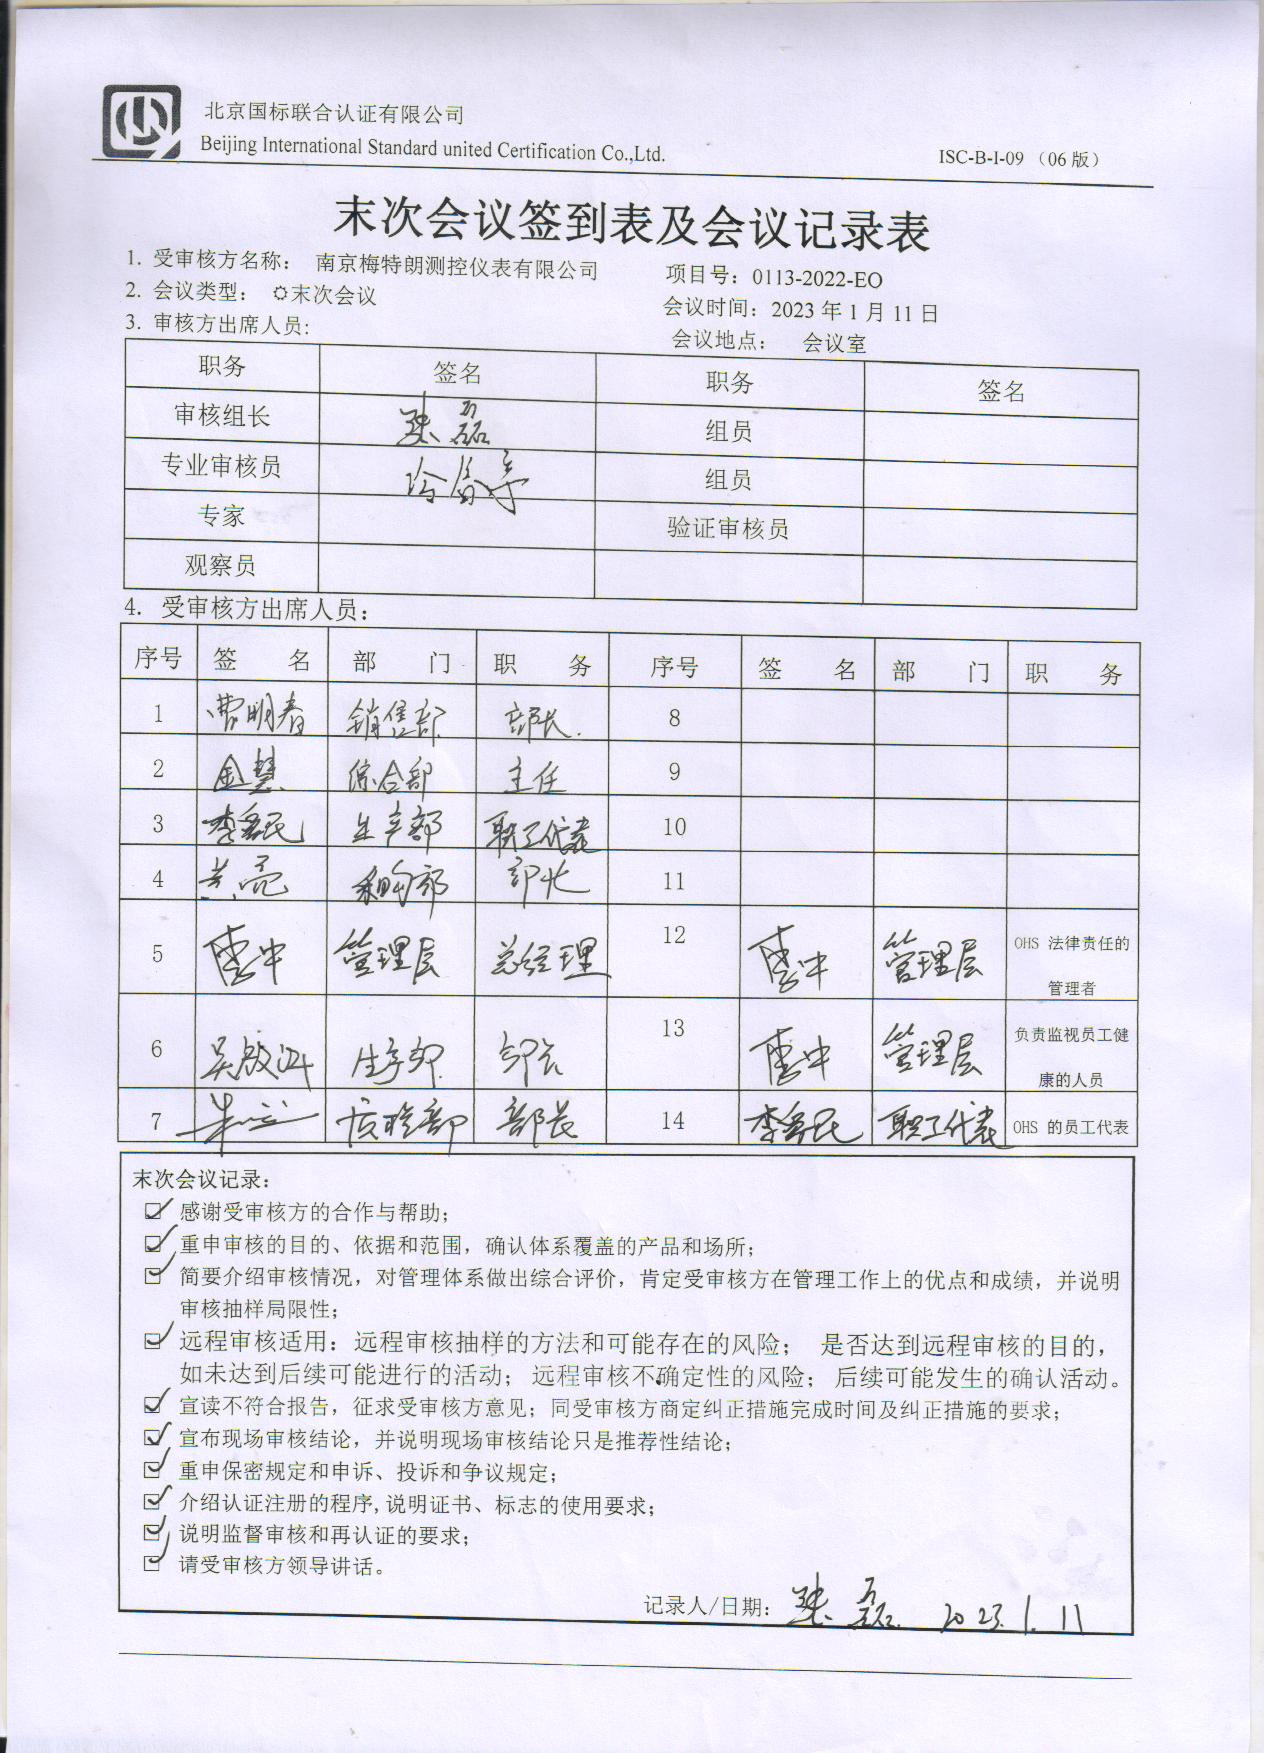 北京国标联合认证有限公司
Beijing International Standard united Certification Co.,Ltd.
ISC-B-I-09 （06 版）
末次会议签到表及会议记录表
1. 受审核方名称： 南京梅特朗测控仪表有限公司 项目号：0113-2022-EO
2. 会议类型： ✩末次会议 会议时间：2023 年 1 月 11 日
3. 审核方出席人员： 会议地点： 会议室
职务 签名 职务 签名
审核组长 磊 组员
专业审核员 组员
专家 验证审核员
观察员
4. 受审核方出席人员：
序号 签 名 部 门 职 务 序号 签 名 部 门 职 务
1 曹明春 销售部 部长 8
2 金慧 综合部 主任 9
3 李 民 生产部 职工代表 10
4 黄亮 采购部 部长 11
5 管理层 总经理 12 管理层 OHS 法律责任的管理者
6 吴 生产部 部长 13 管理层 负责监视员工健康的人员
7 朱 质检部 部长 14 李 民 职工代表 OHS 的员工代表
末次会议记录：
☑ 感谢受审核方的合作与帮助；
☑ 重申审核的目的、依据和范围，确认体系覆盖的产品和场所；
☑ 简要介绍审核情况，对管理体系做出综合评价，肯定受审核方在管理工作上的优点和成绩，并说明
审核抽样局限性；
☑ 远程审核适用：远程审核抽样的方法和可能存在的风险； 是否达到远程审核的目的，
如未达到后续可能进行的活动；远程审核不确定性的风险；后续可能发生的确认活动。
☑ 宣读不符合报告，征求受审核方意见；同受审核方商定纠正措施完成时间及纠正措施的要求；
☑ 宣布现场审核结论，并说明现场审核结论只是推荐性结论；
☑ 重申保密规定和申诉、投诉和争议规定；
☑ 介绍认证注册的程序,说明证书、标志的使用要求；
☑ 说明监督审核和再认证的要求；
☑ 请受审核方领导讲话。
记录人/日期： 磊 2023.1.11